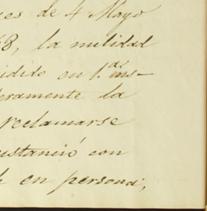 es de 4 Mayo
8, la nulidad
idido en 1.ª ins-
eramente la
reclamarse
ustanció con
en persona,